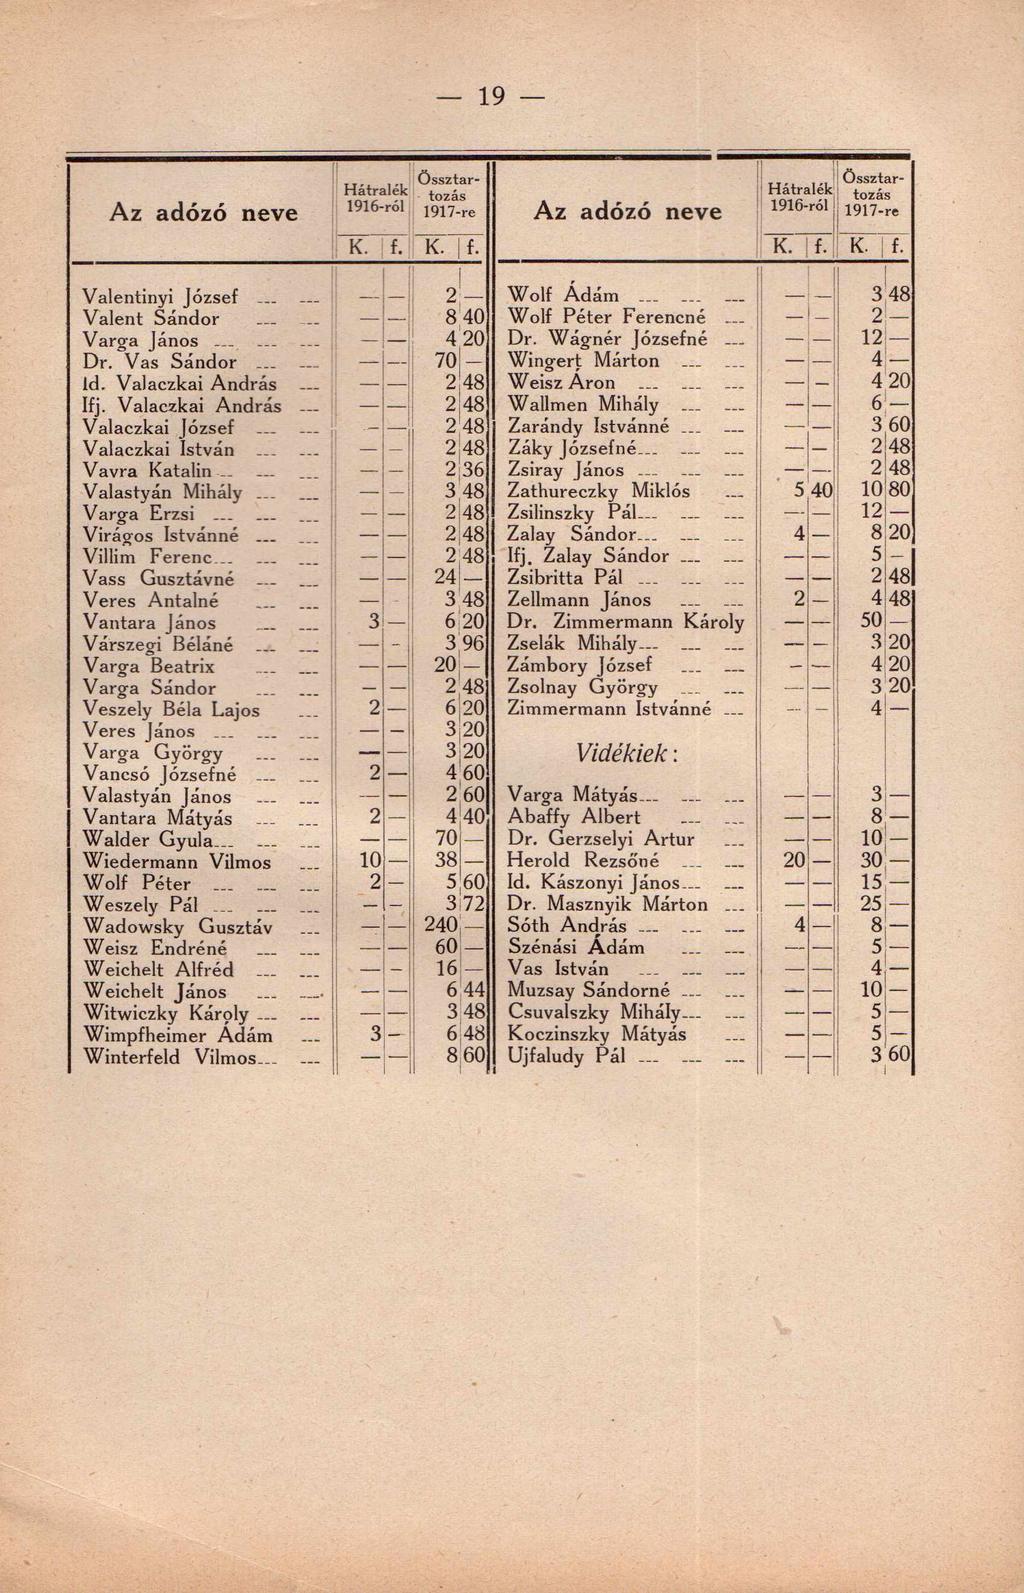 — 19 —
Az adózó neve Hátralék 1916-ról Össztar-tozás 1917-re
K. f. K. f.
Valentinyi József — — 2 —
Valent Sándor — — 8 40
Varga János — — 4 20
Dr. Vas Sándor — — 70 —
Id. Valaczkai András — — 2 48
Ifj. Valaczkai András — — 2 48
Valaczkai József — — 2 48
Valaczkai István — — 2 48
Vavra Katalin — — 2 36
Valastyán Mihály — — 3 48
Varga Erzsi — — 2 48
Virágos Istvánné — — 2 48
Villim Ferenc — — 2 48
Vass Gusztávné — — 24 —
Veres Antalné — — 3 48
Vantara János 3 — 6 20
Várszegi Béláné — — 3 96
Varga Beatrix — — 20 —
Varga Sándor — — 2 48
Veszely Béla Lajos 2 — 6 20
Veres János — — 3 20
Varga György — — 3 20
Vancsó Józsefné 2 — 4 60
Valastyán János — — 2 60
Vantara Mátyás 2 — 4 40
Walder Gyula — — 70 —
Wiedermann Vilmos 10 — 38 —
Wolf Péter 2 — 5 60
Weszely Pál — — 3 72
Wadowsky Gusztáv — — 240 —
Weisz Endréné — — 60 —
Weichelt Alfréd — — 16 —
Weichelt János — — 6 44
Witwiczky Károly — — 3 48
Wimpfheimer Ádám 3 — 6 48
Winterfeld Vilmos — — 8 60
Az adózó neve Hátralék 1916-ról Össztar-tozás 1917-re
K. f. K. f.
Wolf Ádám — — 3 48
Wolf Péter Ferencné — — 2 —
Dr. Wágnér Józsefné — — 12 —
Wingert Márton — — 4 —
Weisz Áron — — 4 20
Wallmen Mihály — — 6 —
Zarándy Istvánné — — 3 60
Záky Józsefné — — 2 48
Zsiray János — — 2 48
Zathureczky Miklós 5 40 10 80
Zsilinszky Pál — — 12 —
Zalay Sándor 4 — 8 20
Ifj. Zalay Sándor — — 5 —
Zsibritta Pál — — 2 48
Zellmann János 2 — 4 48
Dr. Zimmermann Károly — — 50 —
Zselák Mihály — — 3 20
Zámbory József — — 4 20
Zsolnay György — — 3 20
Zimmermann Istvánné — — 4 —
Vidékiek:
Varga Mátyás — — 3 —
Abaffy Albert — — 8 —
Dr. Gerzselyi Artur — — 10 —
Herold Rezsőné 20 — 30 —
Id. Kászonyi János — — 15 —
Dr. Masznyik Márton — — 25 —
Sóth András 4 — 8 —
Szénási Ádám — — 5 —
Vas István — — 4 —
Muzsay Sándorné — — 10 —
Csuvalszky Mihály — — 5 —
Koczinszky Mátyás — — 5 —
Ujfaludy Pál — — 3 60